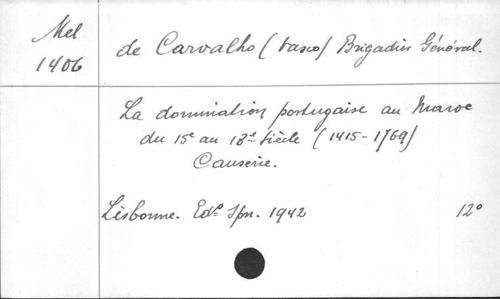 Mel
1406
de Carvalho (Vasco) Brigadier Général.
La domination portugaise au Maroc
du 15e au 18e Siècle (1415-1769)
Causerie.
Lisbonne. Edes Spn. 1942 12°